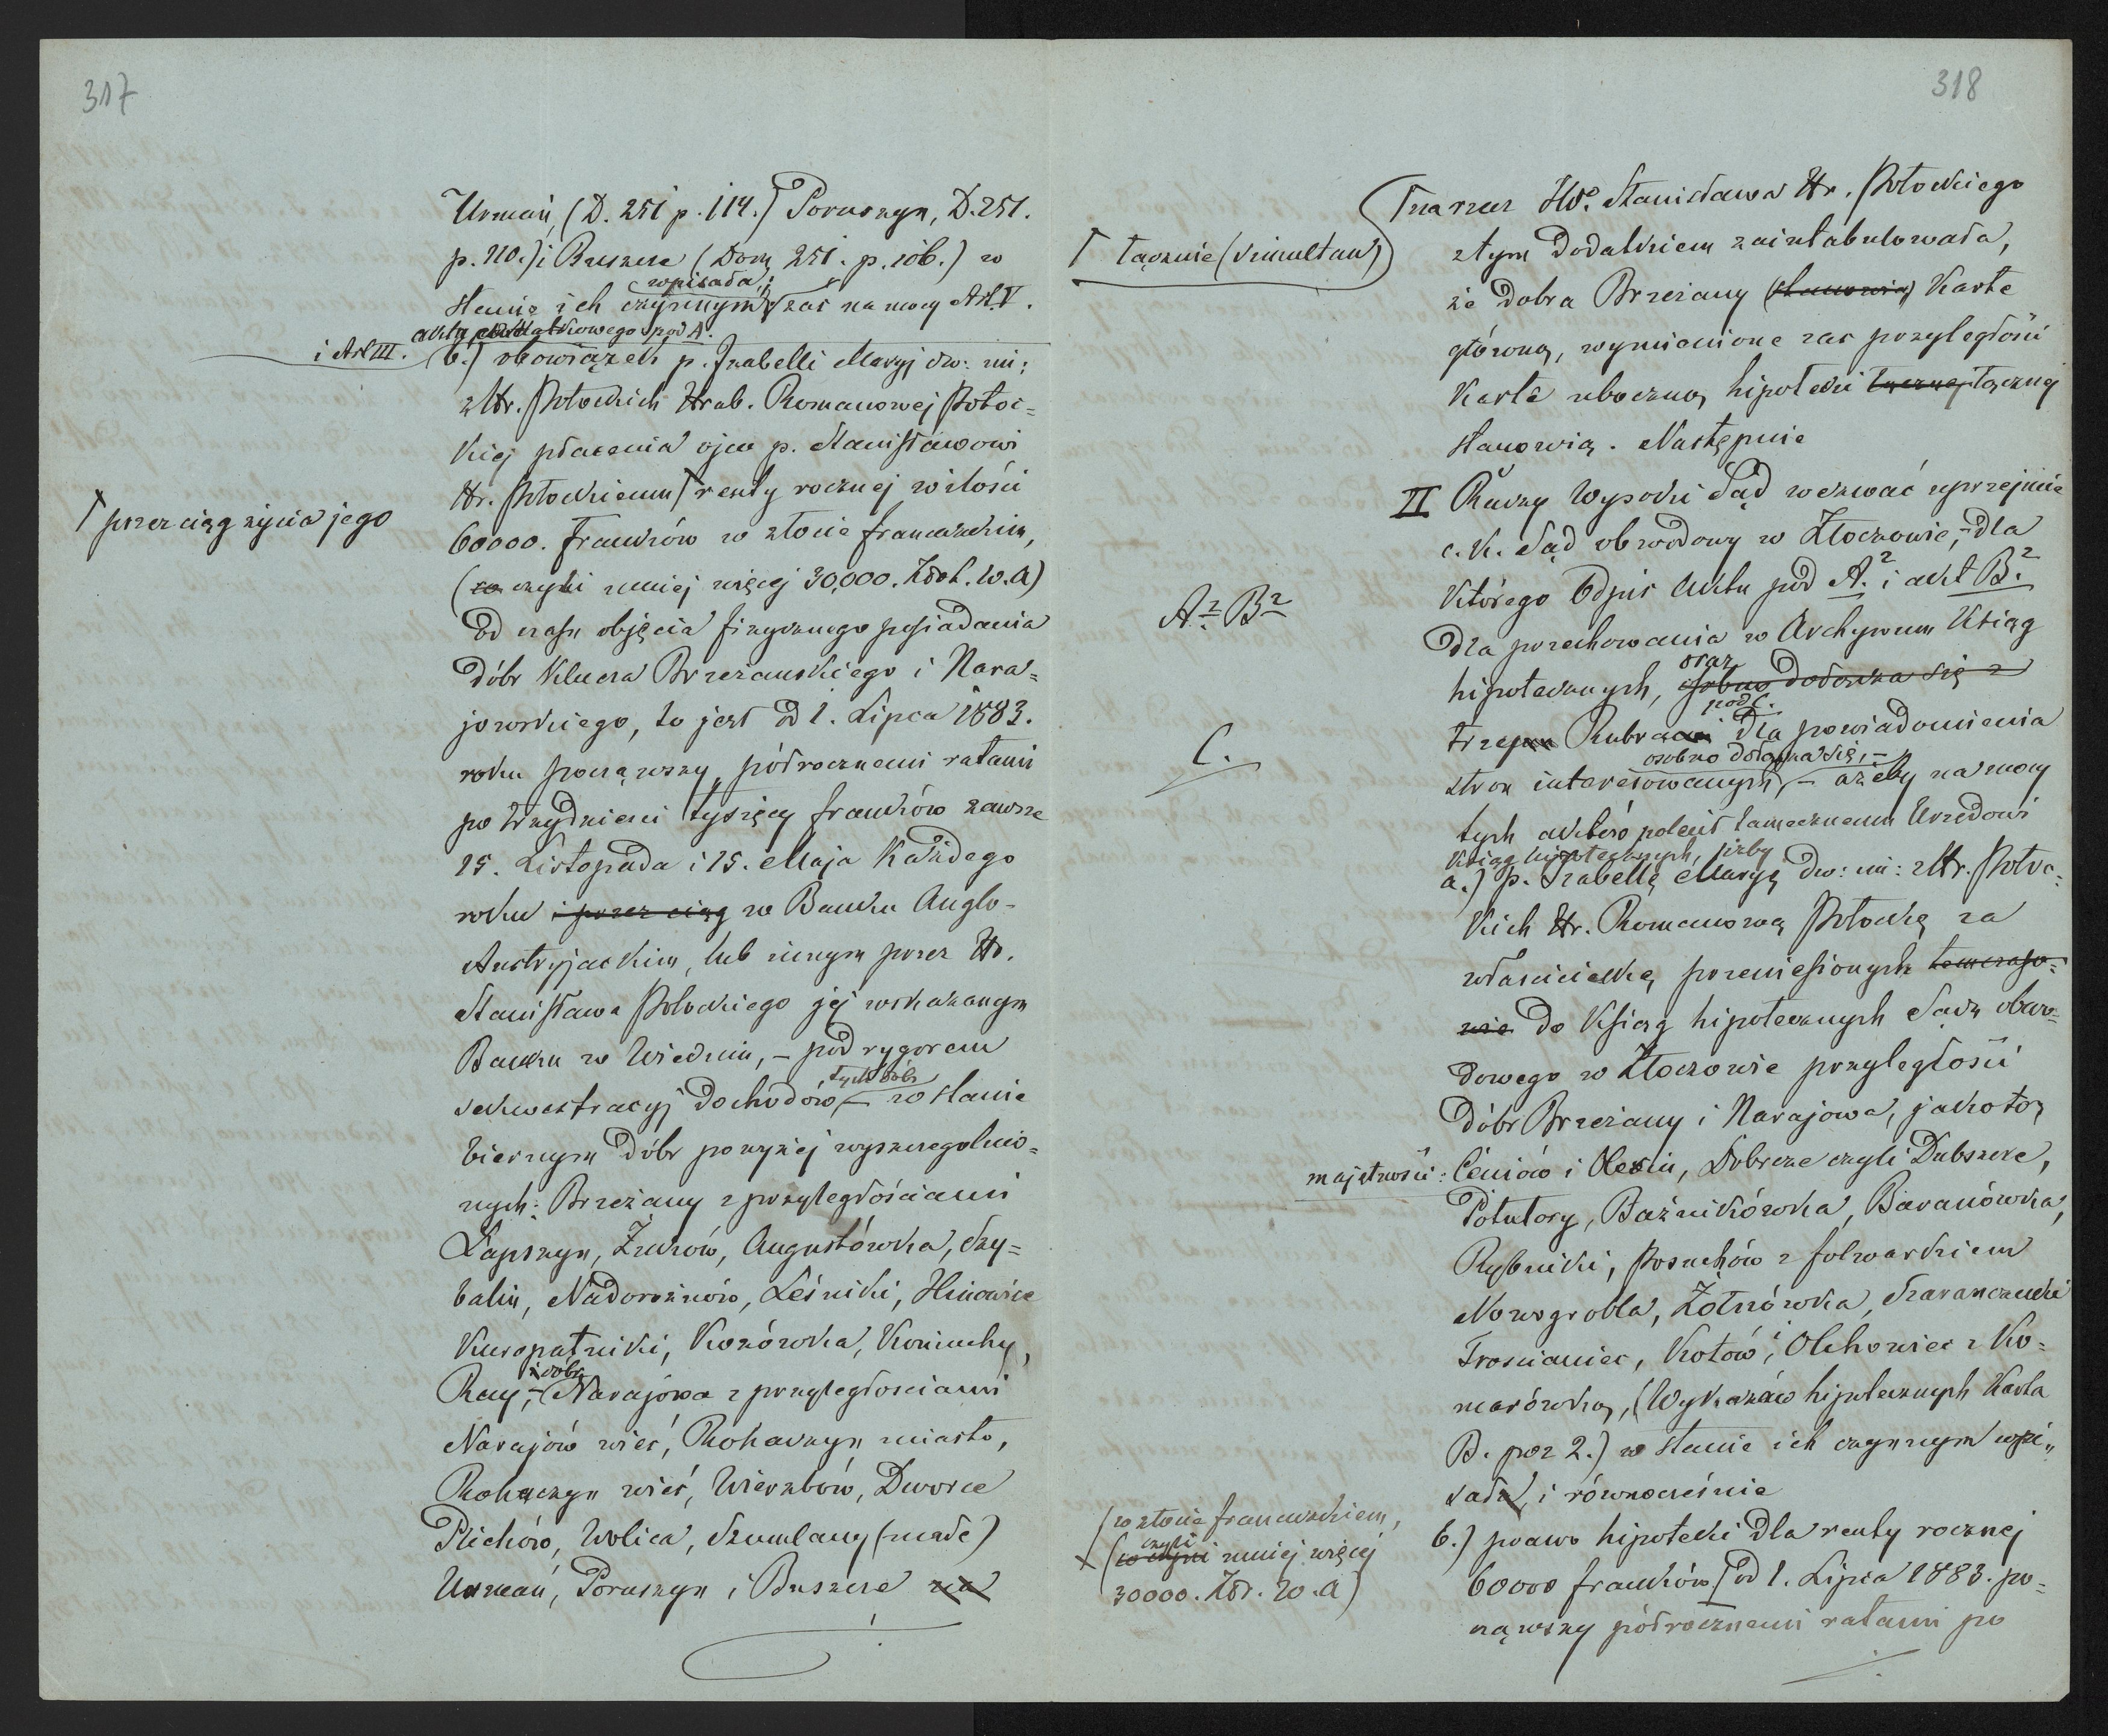 317
Urmań, (D. 251 p. 114.) Poruszyn, D. 251.
p. 110.) i Buszcze (Dom 251. p. 106.) w
wpisała;
stanie ich czynnym zaś na mocy Art. V.
aktu p. A.
i Art III.
b.) obowiązek p. Izabelli Maryi dw: im:
z Hr. Potockich Hrab. Romanowej Potoc=
kiej płacenia ojcu p. Stanisławowi
Hr. Potockiemu renty rocznej w ilości
przez ciąg życia jego
60000. franków w złocie francuzkim,
(co czyli mniej więcej 30,000. Złot. w. a)
od czasu objęcia fizycznego posiadania
dóbr klucza Brzeżańskiego i Nara=
jowskiego, to jest od 1. Lipca 1883.
roku począwszy, półrocznemi ratami
po trzydzieści tysięcy franków zawsze
15. Listopada i 15. Maja każdego
roku i przez ciąg w Banku Anglo-
Austryjackim, lub innym przez Hr.
Stanisława Potockiego jej wskazanym
Banku w Wiedniu, - pod rygorem
tych dóbr
sekwestracyj dochodów - w stanie
biernym dóbr powyżej wyszczególnio=
nych: Brzeżany z przyległościami
Łapszyn, Żuków, Augustówka, Szy=
balin, Nadorożniów, Leśniki, Hinowice
Kuropatniki, Kozówka, Koniuchy,
i dóbr
Ray, - Narajowa z przyległościami
Narajów wieś, Rohaczyn miasto,
Rohaczyn wieś, Wierzbów, Dworce
Plichów, Wolica, Szumlany (małe)
Urmań, Poruszyn i Buszcze na
318
na rzecz JW. Stanisława Hr. Potockiego
łącznie (simultan)
z tym dodatkiem zaintabulowała,
że dobra Brzeżany (stanowią) Kartę
główną, wymienione zaś przyległości
Kartę uboczną hipoteki łącznej łącznej
stanowią. Następnie
II Raczy Wysoki Sąd wezwać uprzejmie
c. k. Sąd obwodowy w Złoczowie, - dla
którego odpis Aktu pod A.² i akt B.²
A² B²
dla przechowania w Archywum Ksiąg
oraz
hipotecznych, osobno dołącza się z
pod C.
trzema Rubra i dla powiadomienia
C.
osobno dołącza się, -
stron interesowanych, - ażeby na mocy
tych aktów polecił tamecznemu Urzędowi
Ksiąg hipotecznych, iżby
a.) p. Izabellę Maryę dw: im: z Hr. Potoc=
kich Hr. Romanową Potocką za
właścicielkę przeniesionych
do Ksiąg hipotecznych Sądu obwo=
dowego w Złoczowie przyległości
dóbr Brzeżany i Narajowa, jakoto,
majętności: Ceniów i Olesin, Dobrcze czyli Dubszcze,
Potutory, Baźnikówka, Baranówka,
Rybniki, Posuchów z folwarkiem
Nowogrobla, Żołnówka, Szaranczuki
Trościaniec, Kotów, i Olchowiec z Ko=
marówką, (Wykazów hipotecznych Karta
B. poz 2.) w stanie ich czynnym wpi=
sał, i równocześnie
b.) prawo hipoteki dla renty rocznej
60000 franków od 1. Lipca 1883. po=
(w złocie francuzkiem,
czyli
(co czyni mniej więcej
30000. Złr. w. a)
cząwszy półrocznemi ratami po